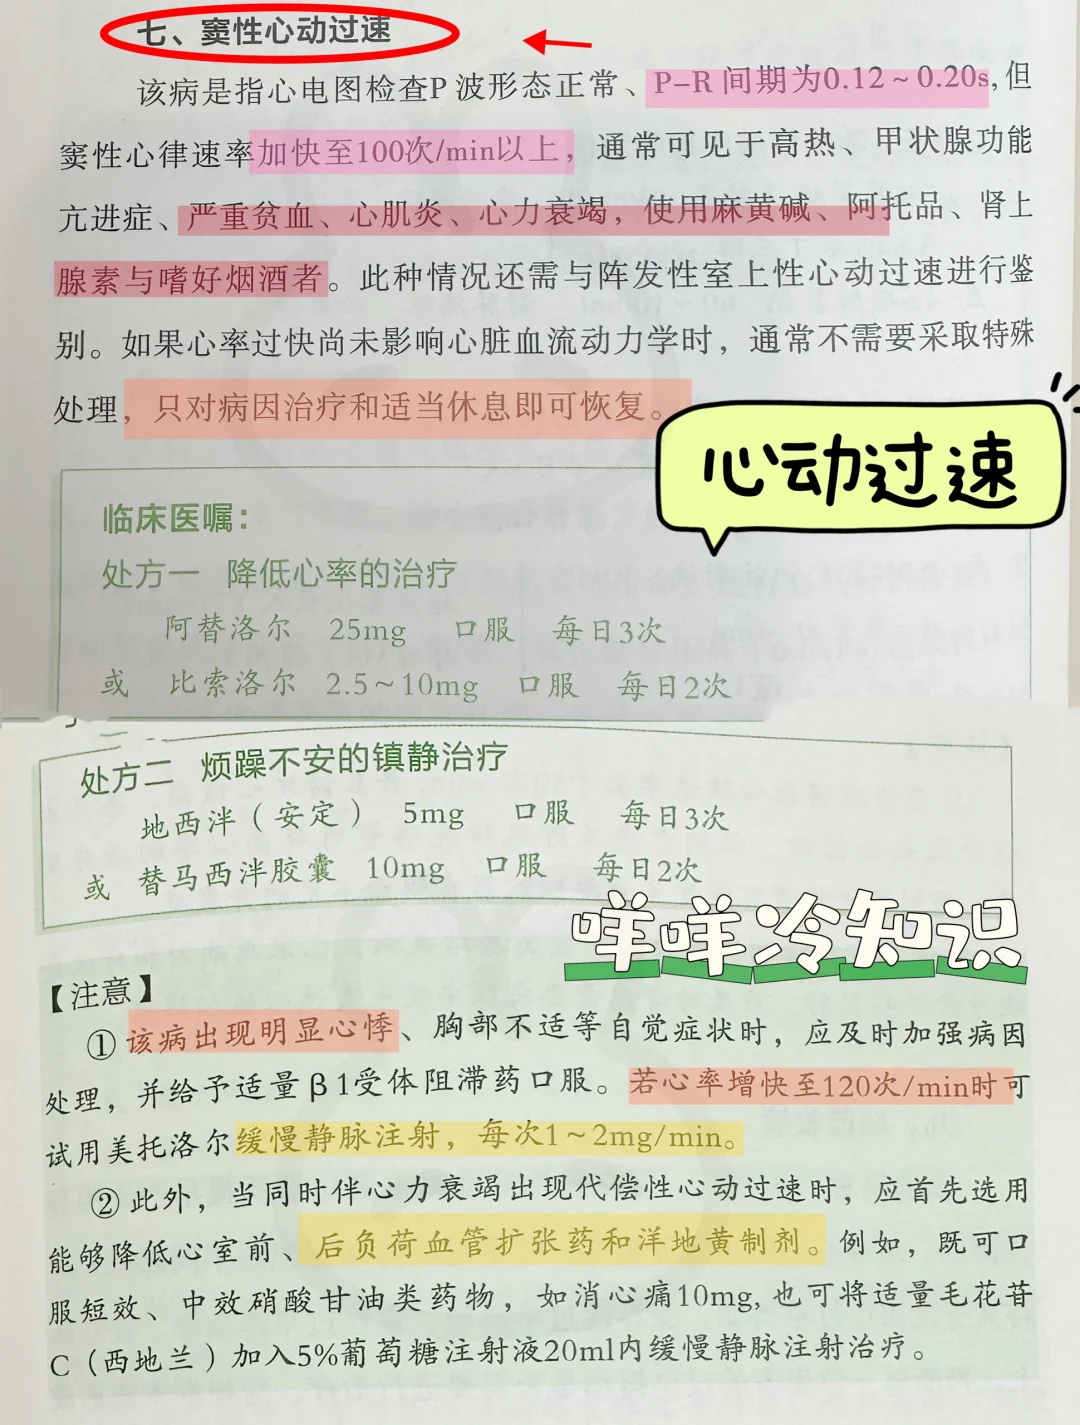 七、窦性心动过速
该病是指心电图检查P波形态正常、P-R间期为0.12~0.20s,但
窦性心律速率加快至100次/min以上，通常可见于高热、甲状腺功能
亢进症、严重贫血、心肌炎、心力衰竭，使用麻黄碱、阿托品、肾上
腺素与嗜好烟酒者。此种情况还需与阵发性室上性心动过速进行鉴
别。如果心率过快尚未影响心脏血流动力学时，通常不需要采取特殊
处理，只对病因治疗和适当休息即可恢复。
心动过速
临床医嘱：
处方一 降低心率的治疗
阿替洛尔 25mg 口服 每日3次
或 比索洛尔 2.5~10mg 口服 每日2次
处方二 烦躁不安的镇静治疗
地西泮（安定） 5mg 口服 每日3次
或 替马西泮胶囊 10mg 口服 每日2次
咩咩冷知识
【注意】
①该病出现明显心悸、胸部不适等自觉症状时，应及时加强病因
处理，并给予适量β1受体阻滞药口服。若心率增快至120次/min时可
试用美托洛尔缓慢静脉注射，每次1~2mg/min。
②此外，当同时伴心力衰竭出现代偿性心动过速时，应首先选用
能够降低心室前、后负荷血管扩张药和洋地黄制剂。例如，既可口
服短效、中效硝酸甘油类药物，如消心痛10mg,也可将适量毛花苷
C（西地兰）加入5%葡萄糖注射液20ml内缓慢静脉注射治疗。